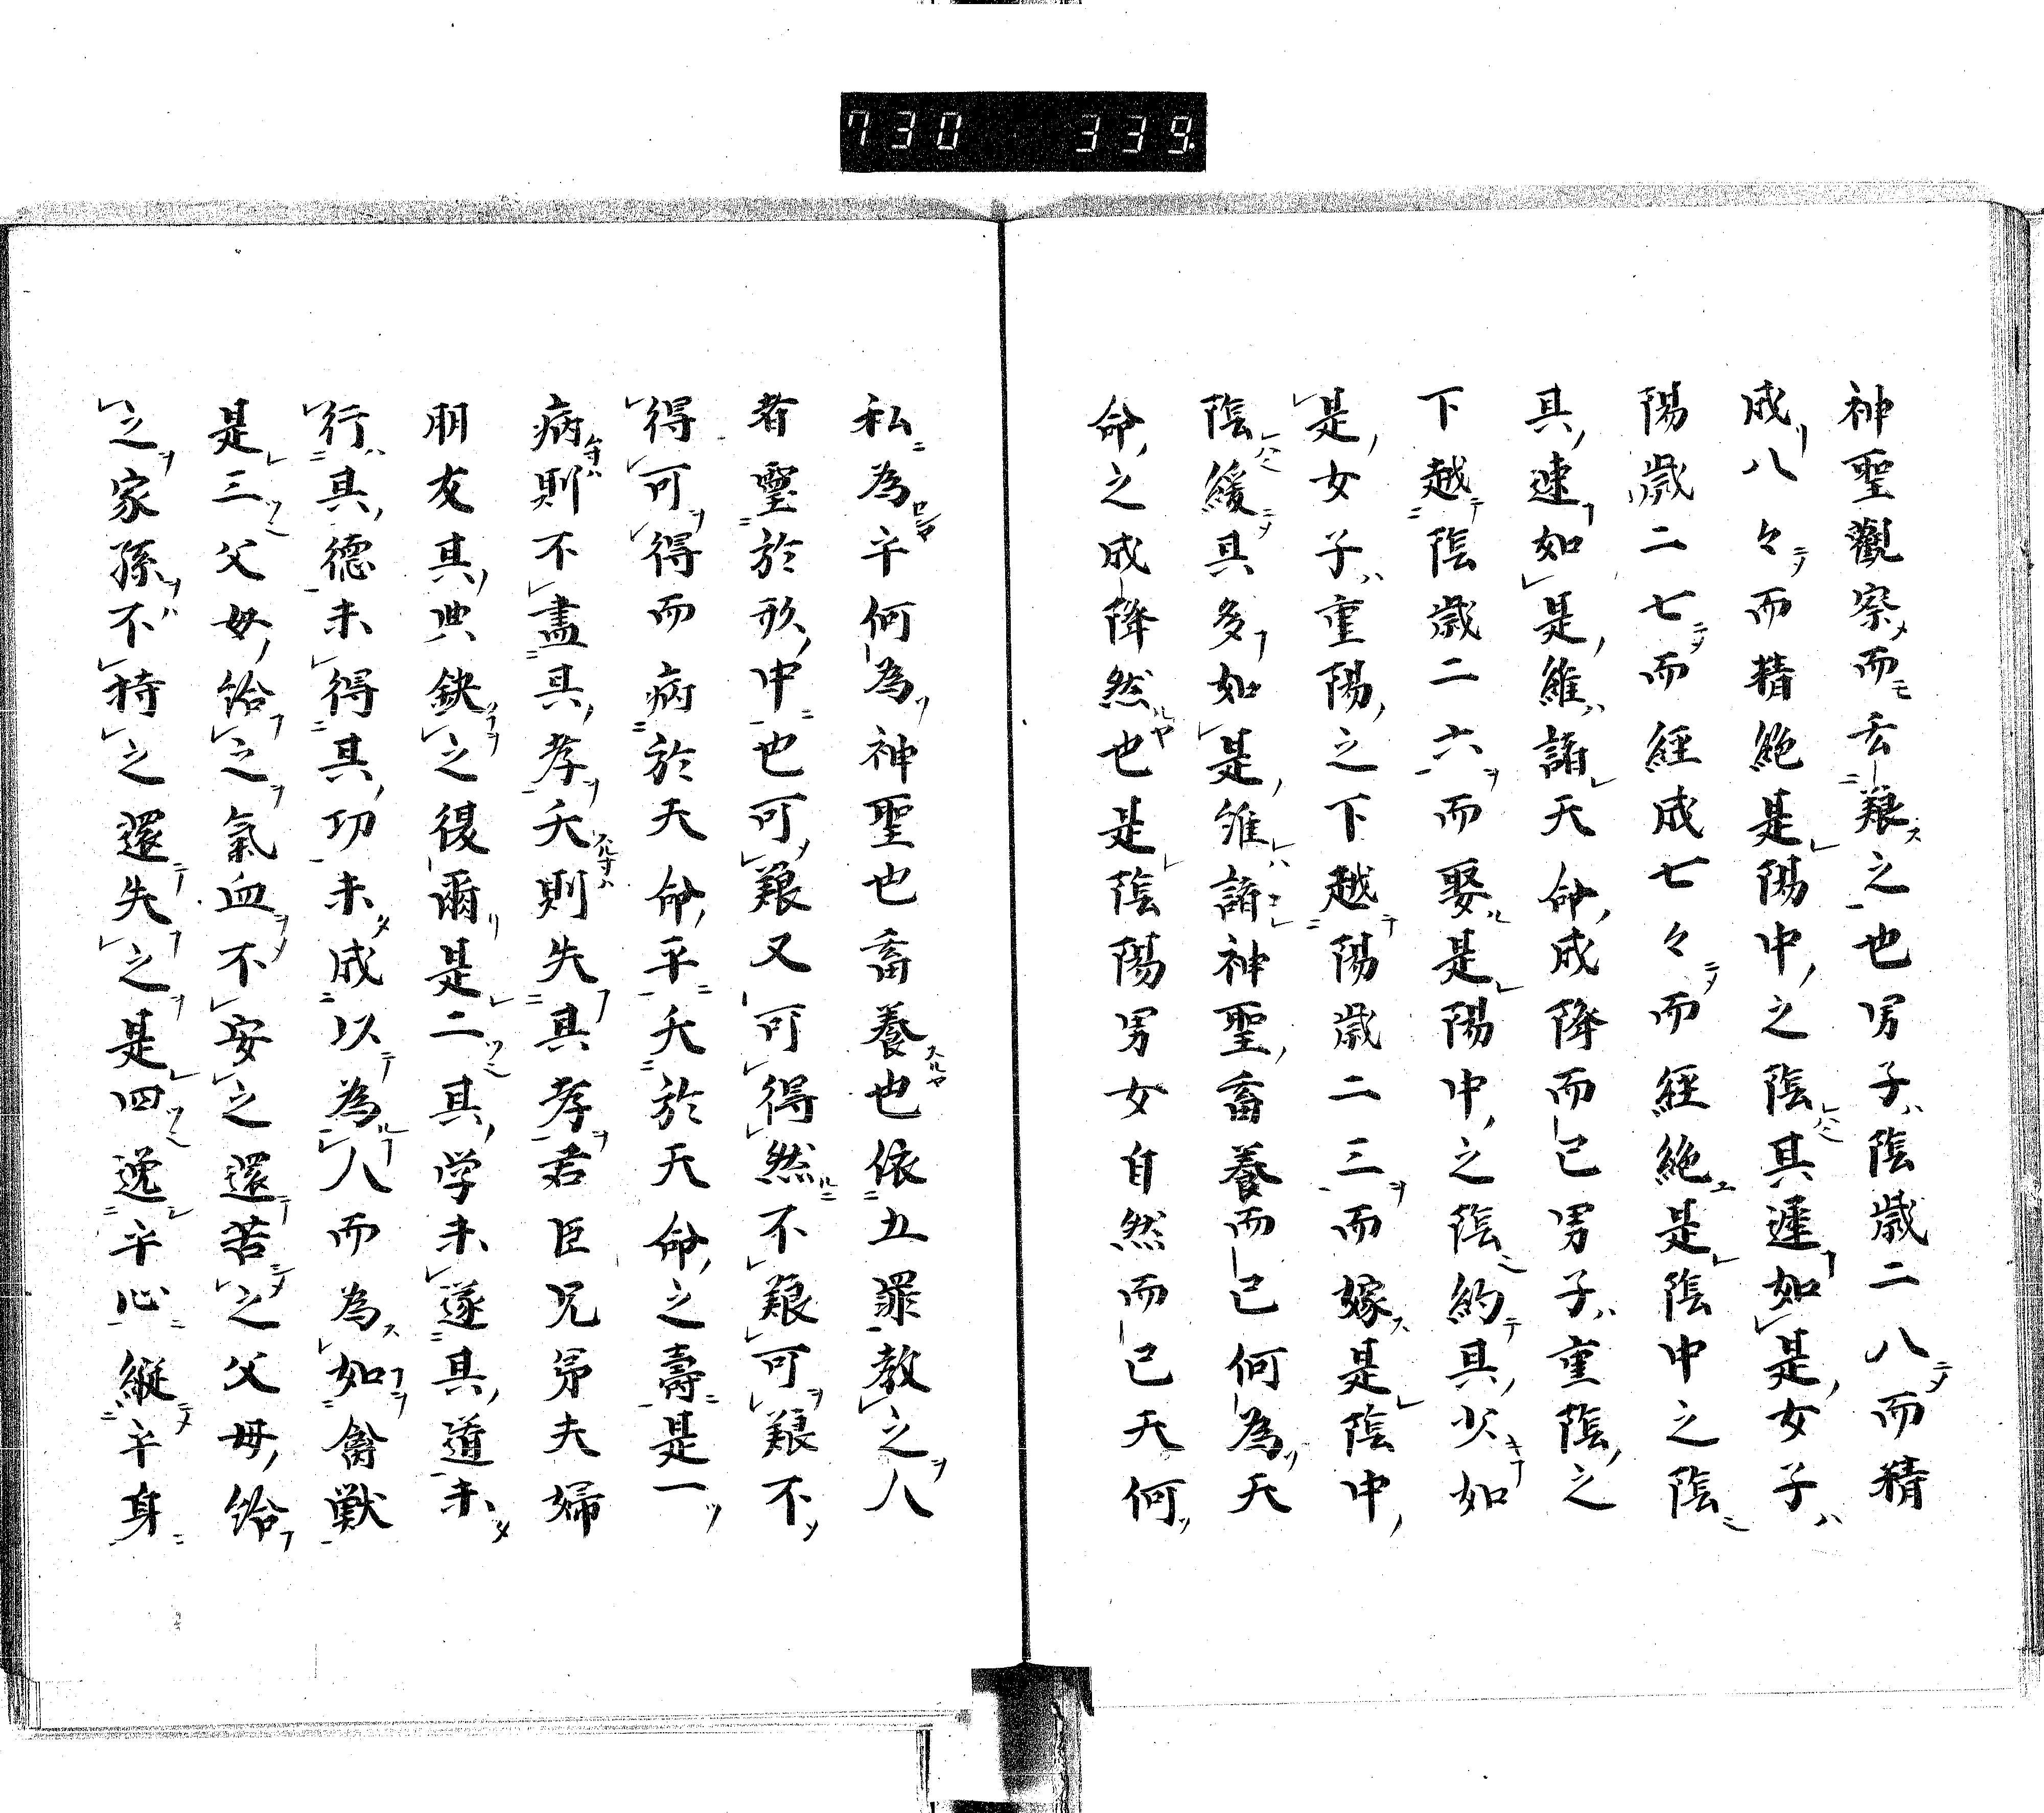 730 339
神聖觀察而玄艱之也男子陰歳二八而精
成八々而精絶是陽中之陰其遲如是女子
陽歳二七而經成七々而經絶是陰中之陰
其速如是雖諸天命成降而已男子重陰之
下越陰歳二六而娶是陽中之陰約其少如
是女子重陽之下越陽歳二三而嫁是陰中
陰緩其多如是雖諸神聖畜養而已何為天
命之成降然也是陰陽男女自然而已天何
私為乎何為神聖也畜養也依五罪教之人
者璽於形中也可艱又可得然不艱可艱不
得可得而病於天命平夭於天命之壽是一
病則不盡其孝夭則失其孝君臣兄弟夫婦
朋友其典欽之復爾是二其学未遂其道未
行其德未得其功未成以為人而為如禽獣
是三父母給之氣血不安之還苦之父母給
之家孫不持之還失之是四逸乎心縦乎身